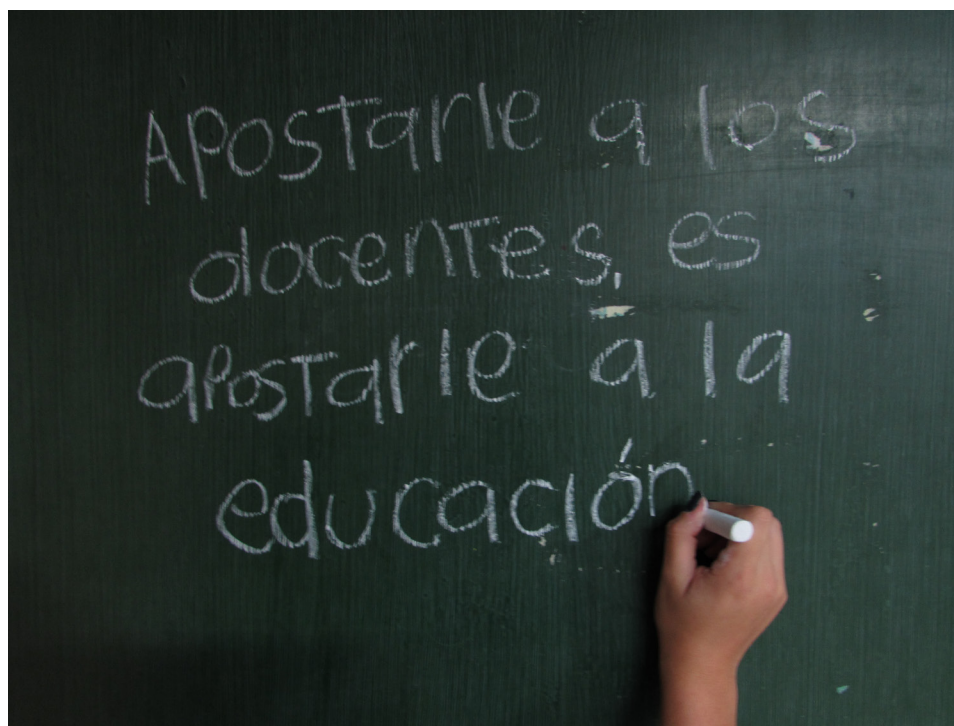 Apostarle a los
docentes, es
apostarle a la
educación